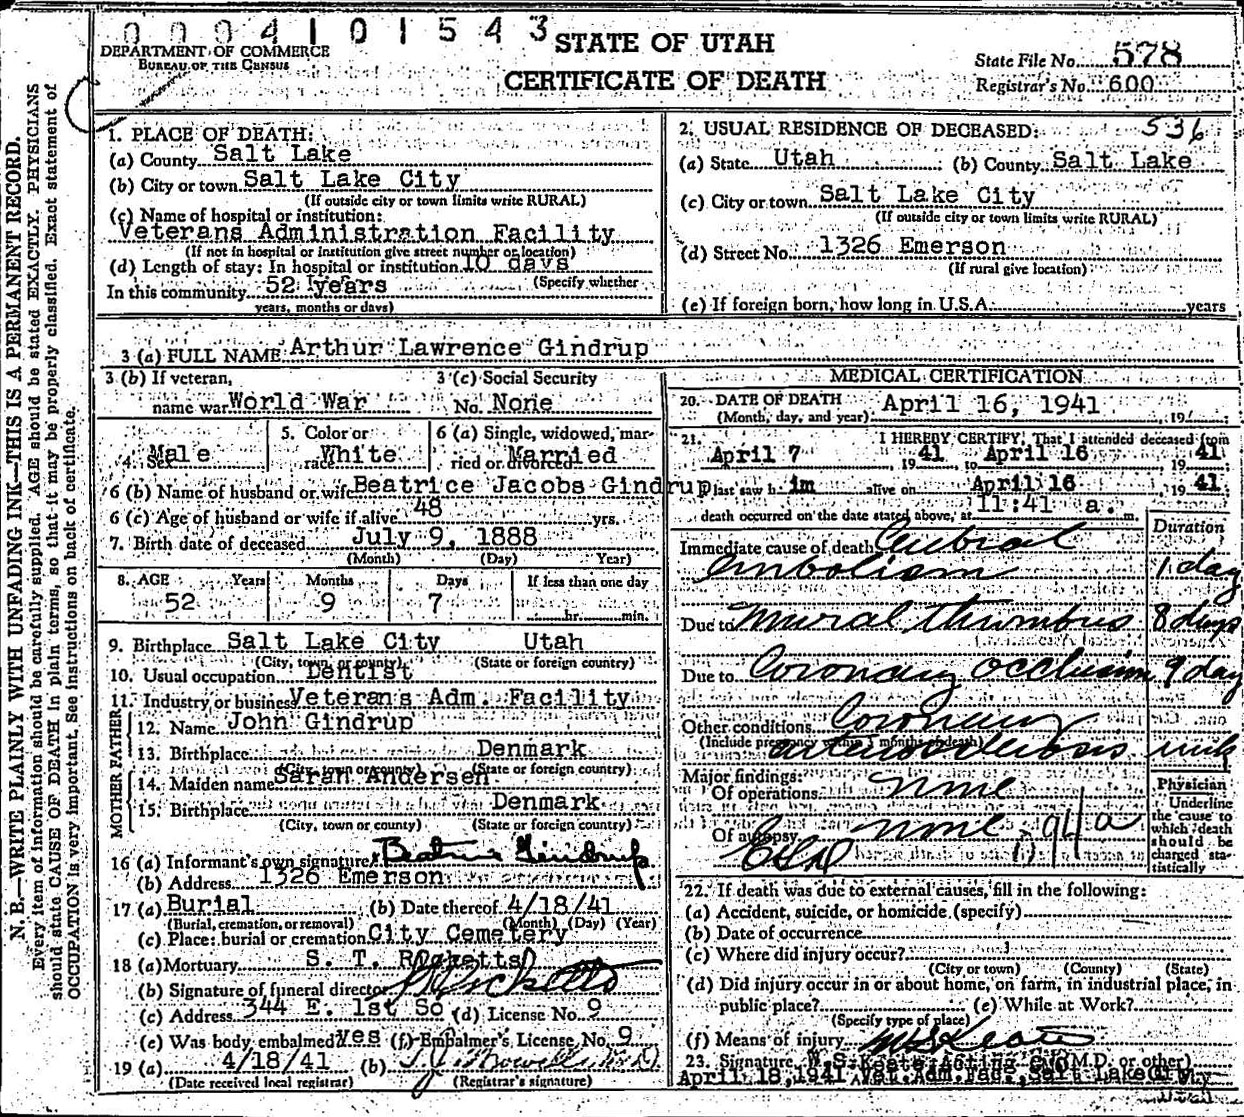 0004101543
DEPARTMENT OF COMMERCE
BUREAU OF THE CENSUS
STATE OF UTAH
CERTIFICATE OF DEATH
State File No. 578
Registrar's No. 600
N. B.—WRITE PLAINLY WITH UNFADING INK—THIS IS A PERMANENT RECORD.
Every item of information should be carefully supplied. AGE should be stated EXACTLY. PHYSICIANS
should state CAUSE OF DEATH in plain terms, so that it may be properly classified. Exact statement of
OCCUPATION is very important. See instructions on back of certificate.
1. PLACE OF DEATH:
(a) County Salt Lake
(b) City or town Salt Lake City
(If outside city or town limits write RURAL)
(c) Name of hospital or institution:
Veterans Administration Facility
(If not in hospital or institution give street number or location)
(d) Length of stay: In hospital or institution 10 days
(Specify whether
In this community 52 years
years, months or days)
2. USUAL RESIDENCE OF DECEASED: 536
(a) State Utah (b) County Salt Lake
(c) City or town Salt Lake City
(If outside city or town limits write RURAL)
(d) Street No. 1326 Emerson
(If rural give location)
(e) If foreign born, how long in U.S.A. years
3 (a) FULL NAME Arthur Lawrence Gindrup
3 (b) If veteran, name war World War
3 (c) Social Security No. None
4. Sex Male
5. Color or race White
6 (a) Single, widowed, married or divorced Married
6 (b) Name of husband or wife Beatrice Jacobs Gindrup
6 (c) Age of husband or wife if alive 48 yrs.
7. Birth date of deceased July 9, 1888
(Month) (Day) Year)
8. AGE Years Months Days If less than one day
52 9 7 hr. min.
9. Birthplace Salt Lake City Utah
(City, town or county) (State or foreign country)
10. Usual occupation Dentist
11. Industry or business Veterans Adm. Facility
FATHER
12. Name John Gindrup
13. Birthplace Denmark
(City, town or county) (State or foreign country)
MOTHER
14. Maiden name Sarah Andersen
15. Birthplace Denmark
(City, town or county) (State or foreign country)
16 (a) Informant's own signature Beatrice Gindrup
(b) Address 1326 Emerson
17 (a) Burial (b) Date thereof 4/18/41
(Burial, cremation, or removal) (Month) (Day) (Year)
(c) Place: burial or cremation City Cemetery
18 (a) Mortuary S. T. Ricketts
(b) Signature of funeral director Ricketts
(c) Address 344 E. 1st So (d) License No. 9
(e) Was body embalmed Yes (f) Embalmer's License No. 9
19 (a) 4/18/41 (b) M.D.
(Date received local registrar) (Registrar's signature)
MEDICAL CERTIFICATION
20. DATE OF DEATH April 16, 1941
(Month, day, and year) 19
21. I HEREBY CERTIFY, That I attended deceased from
April 7, 1941 to April 16 1941
I last saw him alive on April 16 1941
death occurred on the date stated above, at 11:41 a. m.
Duration
Immediate cause of death Cerebral
embolism 1 day
Due to Mural thrombus 8 days
Due to Coronary occlusion 9 day
Other conditions Coronary
(Include pregnancy within 3 months of death)
arteriosclerosis
Major findings:
Of operations None
Of autopsy None 94a
Physician
Underline
the cause to
which death
should be
charged sta-
tistically
22. If death was due to external causes, fill in the following:
(a) Accident, suicide, or homicide (specify)
(b) Date of occurrence
(c) Where did injury occur?
(City or town) (County) (State)
(d) Did injury occur in or about home, on farm, in industrial place, in
public place? (e) While at Work?
(Specify type of place)
(f) Means of injury
23. Signature W.S. Keate Acting (M.D. or other)
April 18, 1941 Vet. Adm. Fac., Salt Lake City